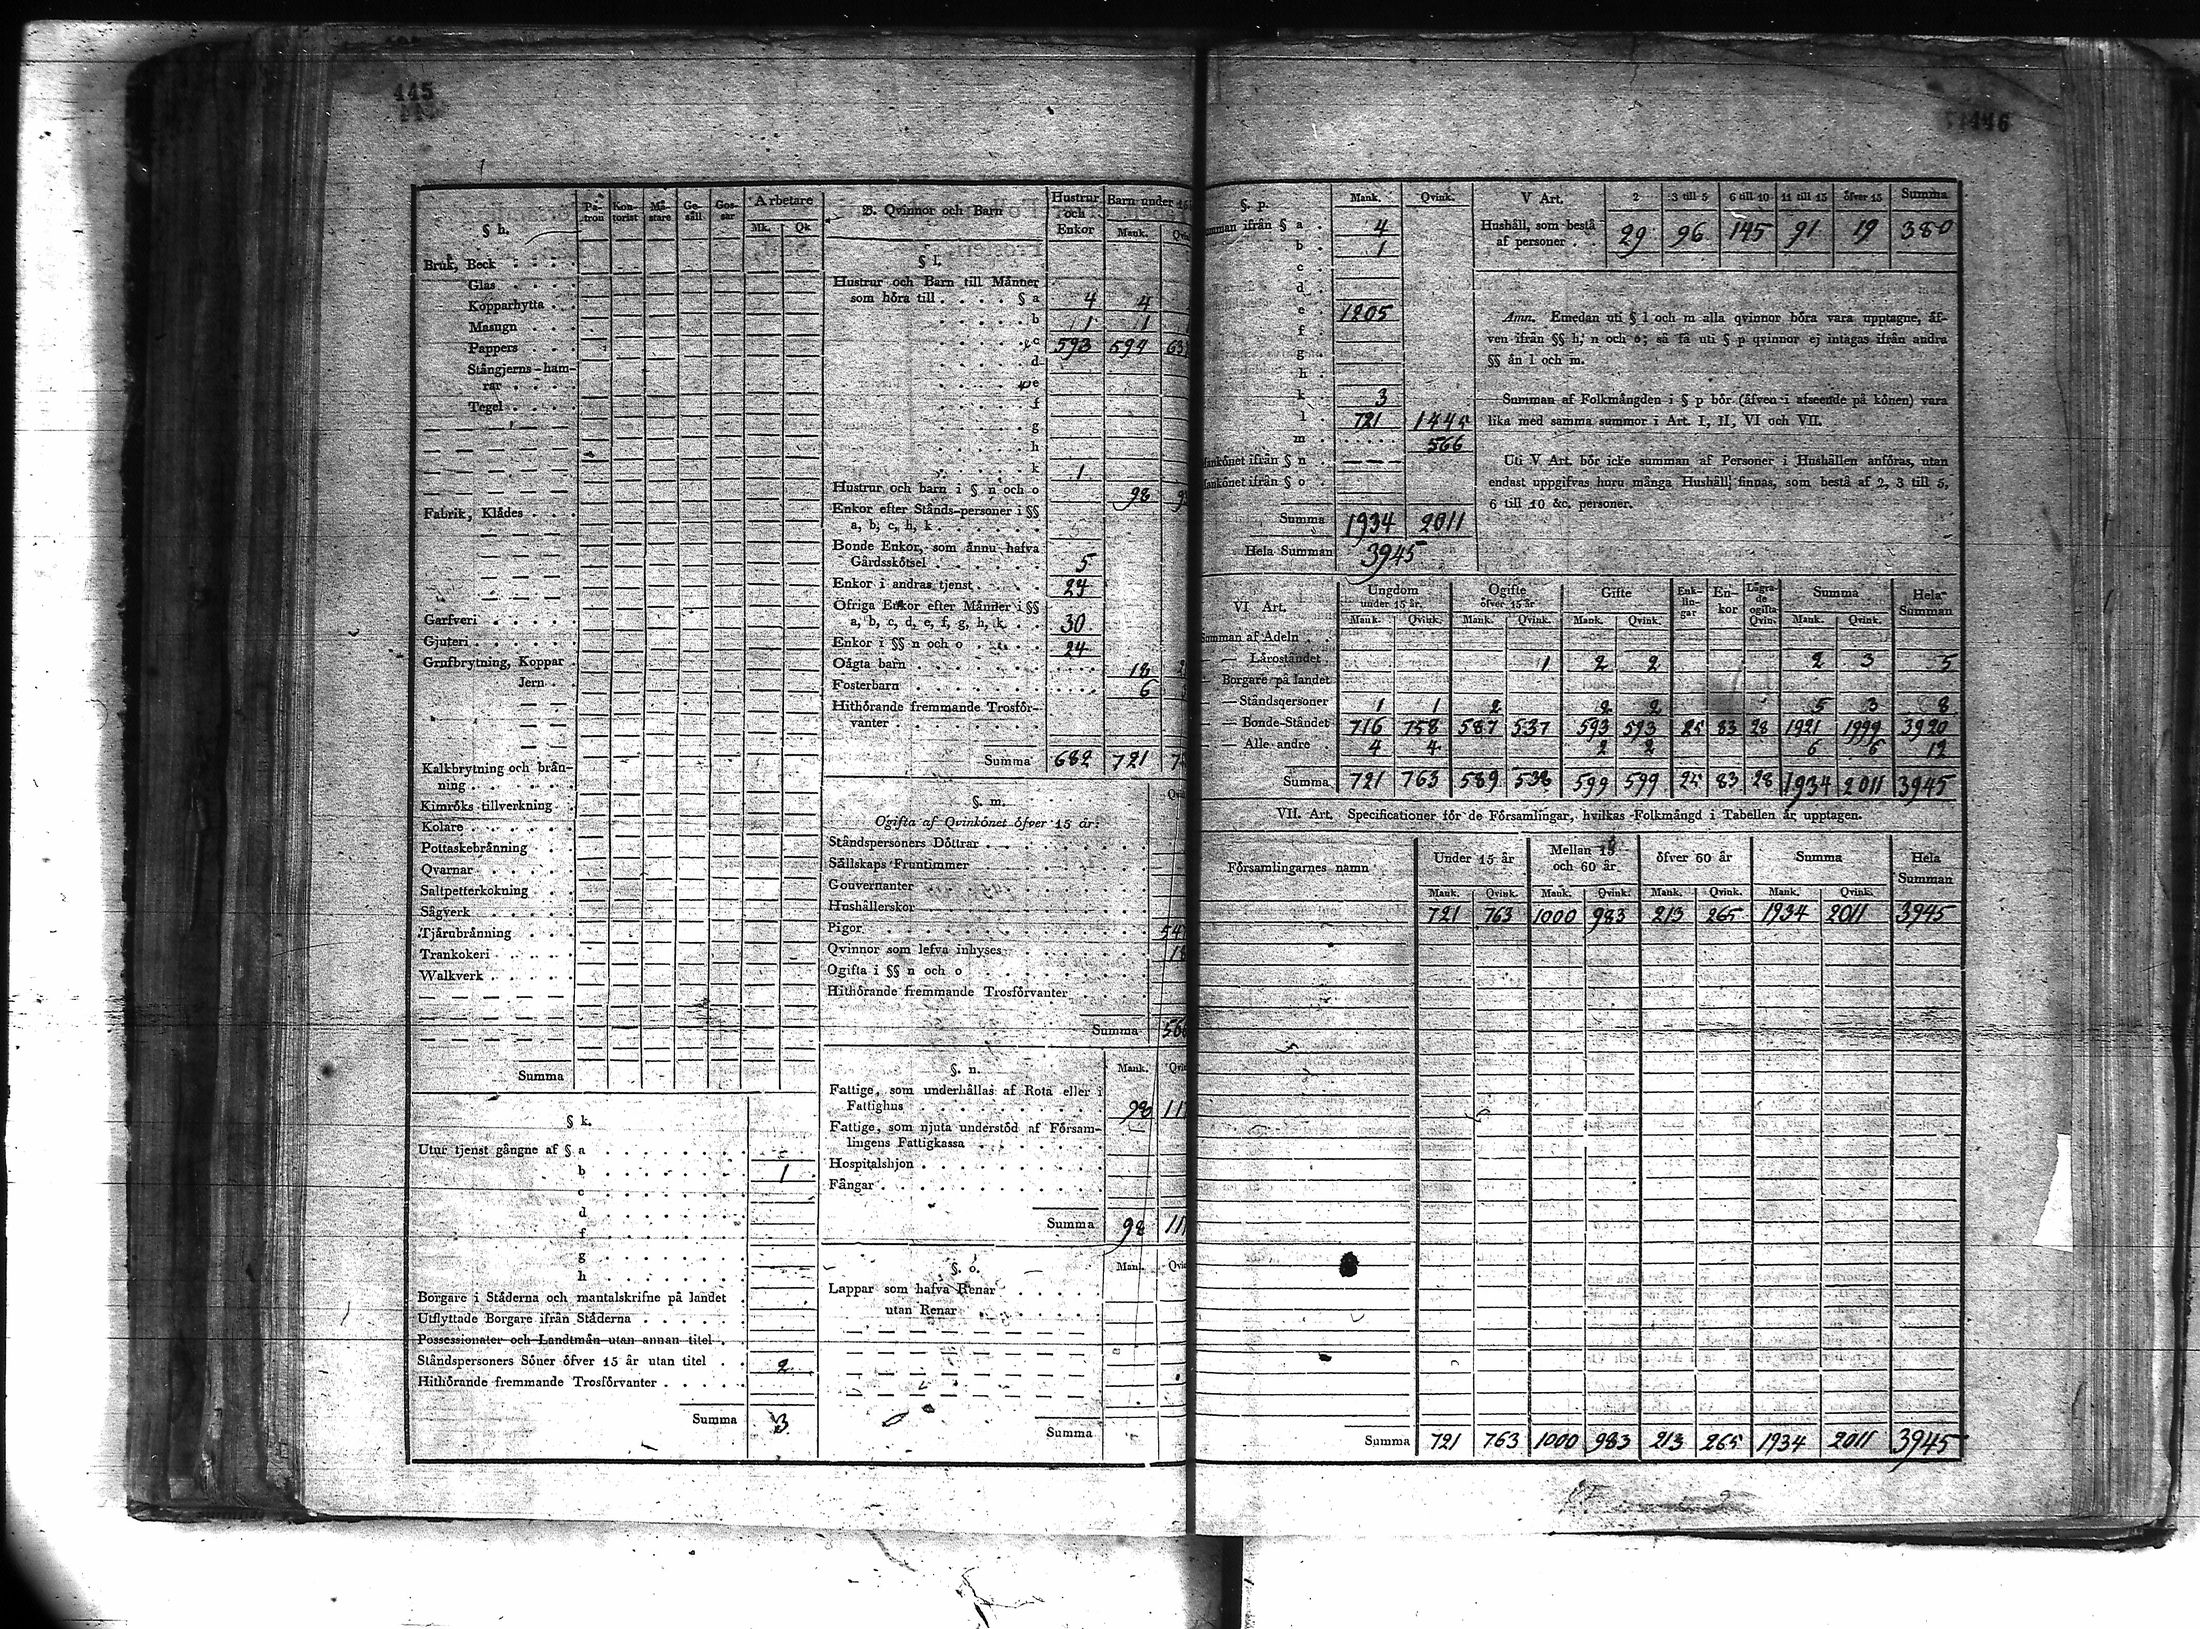 445
446
§ h.
Pa-tron Kon-torist Mä-stare Ge-säll Gos-sar Arbetare
Mk. Qk
Bruk, Beck
Glas
Kopparhytta
Masugn
Pappers
Stångjerns-ham-
rar
Tegel
Fabrik, Klädes
Garfveri
Gjuteri
Grufbrytning, Koppar
Jern
Kalkbrytning och brän-
ning
Kimröks tillverkning
Kolare
Pottaskebränning
Qvarnar
Saltpetterkokning
Sågverk
Tjärubränning
Trankokeri
Walkverk
Summa
§ k.
Utur tjenst gångne af § a
b 1
c
d
f
g
h
Borgare i Städerna och mantalskrifne på landet
Utflyttade Borgare ifrån Städerna
Possessionater och Landtmän utan annan titel
Ståndspersoners Söner öfver 15 år utan titel 2
Hithörande fremmande Trosförvanter
Summa 3
B. Qvinnor och Barn Hustrur och Enkor Barn under 15
Mank.
§ l.
Hustrur och Barn till Männer
som höra till § a 4 4
b 1 1
c 593 594
d
e
f
g
h
k 1
Hustrur och barn i § n och o 98
Enkor efter Stånds-personer i §§
a, b, c, h, k
Bonde Enkor, som ännu hafva
Gårdsskötsel 5
Enkor i andras tjenst 24
Öfriga Enkor efter Männer i §§
a, b, c, d, e, f, g, h, k 30
Enkor i §§ n och o 24
Oägta barn 18
Fosterbarn 6
Hithörande fremmande Trosför-
vanter
Summa 682 721
§. m.
Ogifta af Qvinkönet öfver 15 år:
Ståndspersoners Döttrar
Sällskaps Fruntimmer
Gouvernanter
Hushållerskor
Pigor
Qvinnor som lefva inhyses
Ogifta i §§ n och o
Hithörande fremmande Trosförvanter
Summa 566
§. n. Mank.
Fattige, som underhållas af Rota eller i
Fattighus 98
Fattige, som njuta understöd af Försam-
lingens Fattigkassa
Hospitalshjon
Fångar
Summa 98
§. o. Mank.
Lappar som hafva Renar
utan Renar
Summa
§. p. Mank. Qvink.
ifrån § a 4
b 1
c
d
e 1205
f
g
h
k 3
l 721 1445
m 566
ifrån § n
ifrån § o
Summa 1934 2011
Hela Summan 3945
V Art. 2 3 till 5 6 till 10 11 till 15 öfver 15 Summa
Hushåll, som bestå
af personer 29 96 145 91 19 380
Anm. Emedan uti § l och m alla qvinnor böra vara upptagne, äf-
ven ifrån §§ h, n och o; så få uti § p qvinnor ej intagas ifrån andra
§§ än l och m.
Summan af Folkmängden i § p bör (äfven i afseende på könen) vara
lika med samma summor i Art. I, II, VI och VII.
Uti V Art. bör icke summan af Personer i Hushållen anföras, utan
endast uppgifvas huru många Hushåll finnas, som bestå af 2, 3 till 5,
6 till 10 &c. personer.
VI Art. Ungdom under 15 år. Ogifte öfver 15 år Gifte Enk-lin-gar En-kor Lägra-de ogifta Qvin. Summa Hela Summan
Mank. Qvink. Mank. Qvink. Mank. Qvink. Mank. Qvink.
Summan af Adeln
— — Läroståndet 1 2 2 2 3 5
— Borgare på landet
— — Ståndspersoner 1 1 2 2 2 5 3 8
— — Bonde-Ståndet 716 758 587 537 593 593 25 83 28 1921 1999 3920
— — Alle andre 4 4 2 2 6 6 12
Summa 721 763 589 538 599 599 25 83 28 1934 2011 3945
VII. Art. Specificationer för de Församlingar, hvilkas Folkmängd i Tabellen är upptagen.
Församlingarnes namn Under 15 år Mellan 15 och 60 år öfver 60 år Summa Hela Summan
Mank. Qvink. Mank. Qvink. Mank. Qvink. Mank. Qvink.
721 763 1000 983 213 265 1934 2011 3945
Summa 721 763 1000 983 213 265 1934 2011 3945